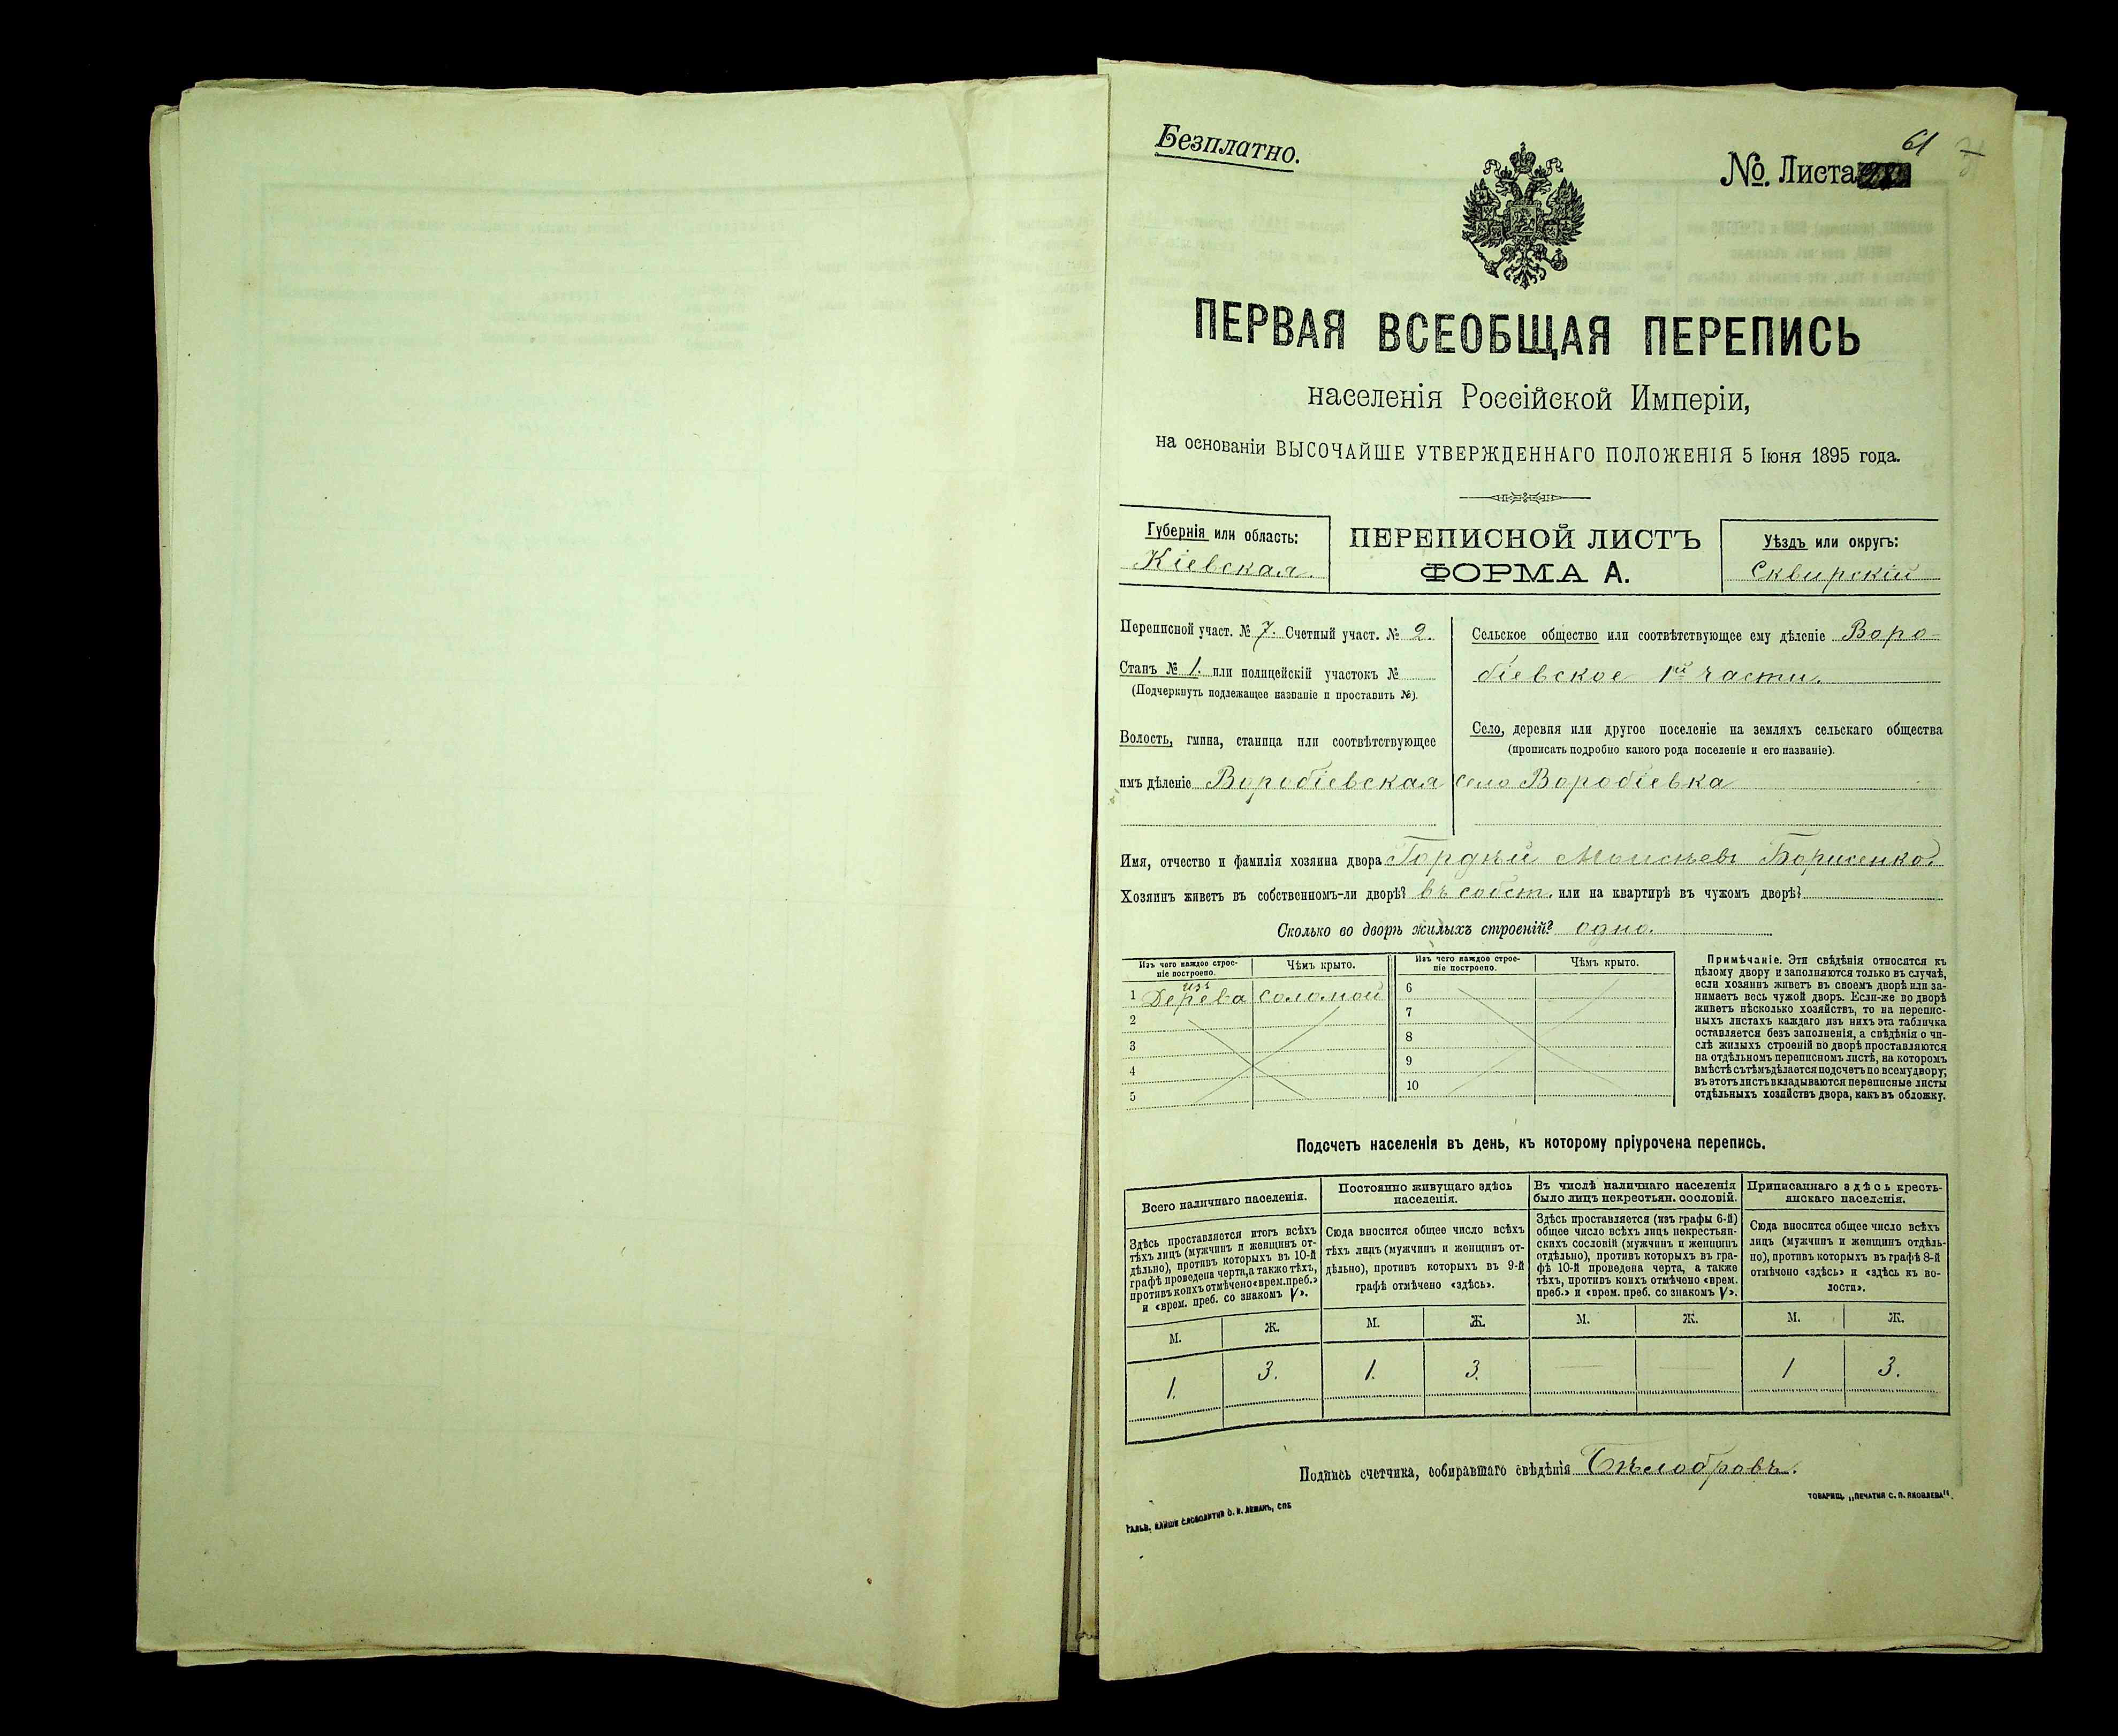 Безплатно.
61
№. Листа
ПЕРВАЯ ВСЕОБЩАЯ ПЕРЕПИСЬ
населенія Россійской Имперіи,
на основаніи ВЫСОЧАЙШЕ УТВЕРЖДЕННАГО ПОЛОЖЕНІЯ 5 Іюня 1895 года.
Губернія или область:
Кіевская.
ПЕРЕПИСНОЙ ЛИСТЪ
ФОРМА А.
Уѣздъ или округъ:
Сквирскій
Переписной участ. № 7. Счетный участ. № 2.
Станъ № 1. или полицейскій участокъ №
(Подчеркнуть подлежащее названіе и проставить №).
Волость, гмина, станица или соотвѣтствующее
имъ дѣленіе Воробіевская
Сельское общество или соотвѣтствующее ему дѣленіе Воро-
біевское 1й части.
Село, деревня или другое поселеніе на земляхъ сельскаго общества
(прописать подробно какого рода поселеніе и его названіе).
село Воробіевка
Имя, отчество и фамилія хозяина двора Гордѣй Моисѣевъ Борисенко.
Хозяинъ живетъ въ собственномъ-ли дворѣ? въ собст. или на квартирѣ въ чужомъ дворѣ?
Сколько во дворѣ жилыхъ строеній? одно.
Изъ чего каждое строе-
ніе построено.
Чѣмъ крыто.
Изъ чего каждое строе-
ніе построено.
Чѣмъ крыто.
1 изъ Дерева соломой
2
3
4
5
6
7
8
9
10
Примѣчаніе. Эти свѣдѣнія относятся къ
цѣлому двору и заполняются только въ случаѣ,
если хозяинъ живетъ въ своемъ дворѣ или за-
нимаетъ весь чужой дворъ. Если-же во дворѣ
живетъ нѣсколько хозяйствъ, то на перепис-
ныхъ листахъ каждаго изъ нихъ эта табличка
оставляется безъ заполненія, а свѣдѣнія о чи-
слѣ жилыхъ строеній во дворѣ проставляются
на отдѣльномъ переписномъ листѣ, на которомъ
вмѣстѣ съ тѣмъ дѣлается подсчетъ по всему двору;
въ этотъ листъ вкладываются переписные листы
отдѣльныхъ хозяйствъ двора, какъ въ обложку.
Подсчетъ населенія въ день, къ которому пріурочена перепись.
Всего наличнаго населенія.
Здѣсь проставляется итогъ всѣхъ
тѣхъ лицъ (мужчинъ и женщинъ от-
дѣльно), противъ которыхъ въ 10-й
графѣ проведена черта, а также тѣхъ,
противъ коихъ отмѣчено «врем. преб.»
и «врем. преб. со знакомъ V».
Постоянно живущаго здѣсь
населенія.
Сюда вносится общее число всѣхъ
тѣхъ лицъ (мужчинъ и женщинъ от-
дѣльно), противъ которыхъ въ 9-й
графѣ отмѣчено «здѣсь».
Въ числѣ наличнаго населенія
было лицъ некрестьян. сословій.
Здѣсь проставляется (изъ графы 6-й)
общее число всѣхъ лицъ некрестьян-
скихъ сословій (мужчинъ и женщинъ
отдѣльно), противъ которыхъ въ гра-
фѣ 10-й проведена черта, а также
тѣхъ, противъ коихъ отмѣчено «врем.
преб.» и «врем. преб. со знакомъ V».
Приписаннаго здѣсь кресть-
янскаго населенія.
Сюда вносится общее число всѣхъ
лицъ (мужчинъ и женщинъ отдѣль-
но), противъ которыхъ въ графѣ 8-й
отмѣчено «здѣсь» и «здѣсь къ во-
лости».
М. Ж. М. Ж. М. Ж. М. Ж.
1. 3. 1. 3. — — 1 3.
Подпись счетчика, собиравшаго свѣдѣнія Бѣлобровъ.
ТОВАРИЩ. „ПЕЧАТНЯ С. П. ЯКОВЛЕВА“.